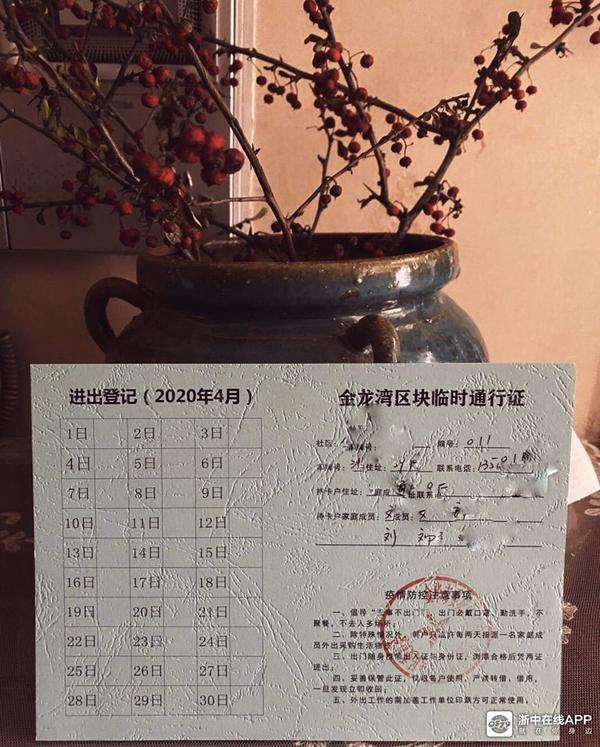 进出登记（2020年4月）
1日 2日 3日
4日 5日 6日
7日 8日 9日
10日 11日 12日
13日 14日 15日
16日 17日 18日
19日 20日 21日
22日 23日 24日
25日 26日 27日
28日 29日 30日
金龙湾区块临时通行证
社区： 编号：011
住址： 联系电话：
持卡户住址：
持卡户家庭成员：
刘
疫情防控注意事项
一、倡导“ 事不出门”，出门必戴口罩，勤洗手，不
聚餐，不去人多场所；
二、除特殊情况外，每户只允许每两天指派一名家庭成
员外出采购生活物
三、出门随身携带出入证与身份证，测温合格后凭两证
进出；
四、妥善保管此证，仅限各户使用，严禁转借、借用，
一旦发现立即收回；
五、外出工作的需加盖工作单位印章方可正常使用。
浙中在线APP
就在你身边